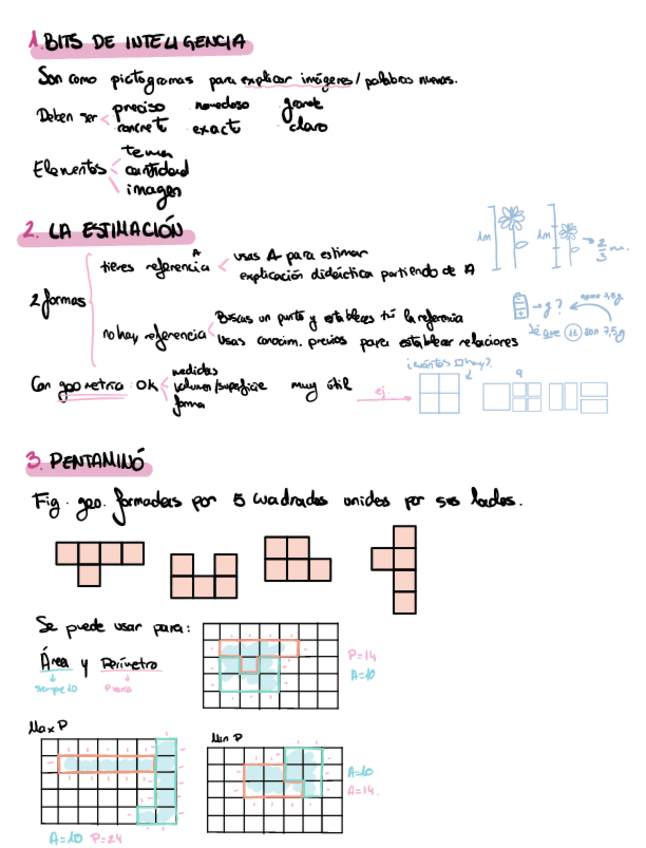 1. BITS DE INTELIGENCIA
Son como pictogramas para explicar imágenes / palabras nuevas.
Deben ser < preciso · novedoso grande
concret · exact claro
Elementos < tema
cantidad
imagen
2. LA ESTIMACIÓN
2 formas
tienes referencia A < usas A para estimar
explicación didáctica partiendo de A
1m
1m → 2/3 m.
no hay referencia < Buscas un punto y estableces tú la referencia
Usas conocim. previos para establecer relaciones
→ g?
Sé que son 7,5g
Con geometría: Ok < medidas
volumen/superficie
forma
muy útil
ej.
¿cuántos □ hay?
9
3. PENTAMINÓ
Fig. geo. formadas por 5 cuadrados unidos por sus lados.
Se puede usar para:
Área y Perímetro
siempre 10
P varia
P=14
A=10
Max P
A=10 P=24
Min P
A=10
A=14.